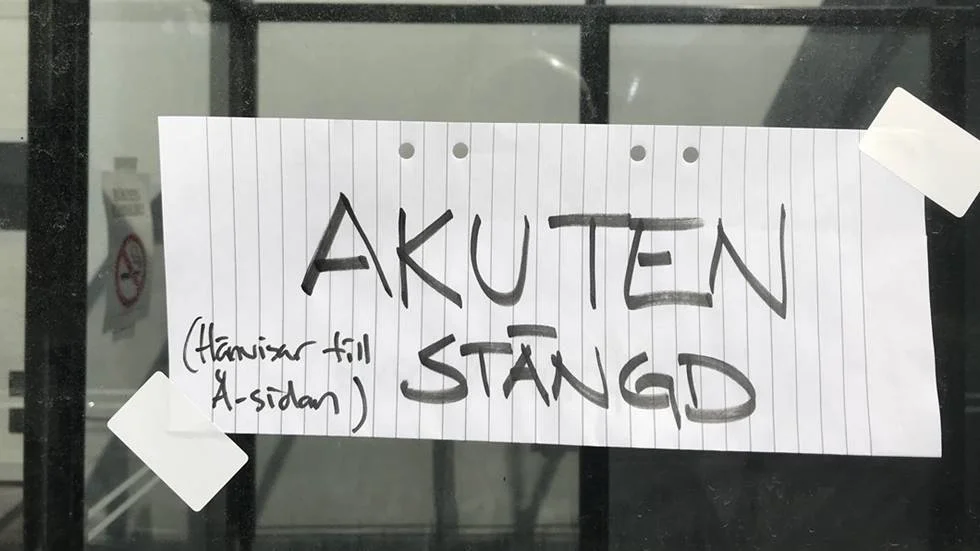 AKUTEN
STÄNGD
(Hänvisar till
Å-sidan)